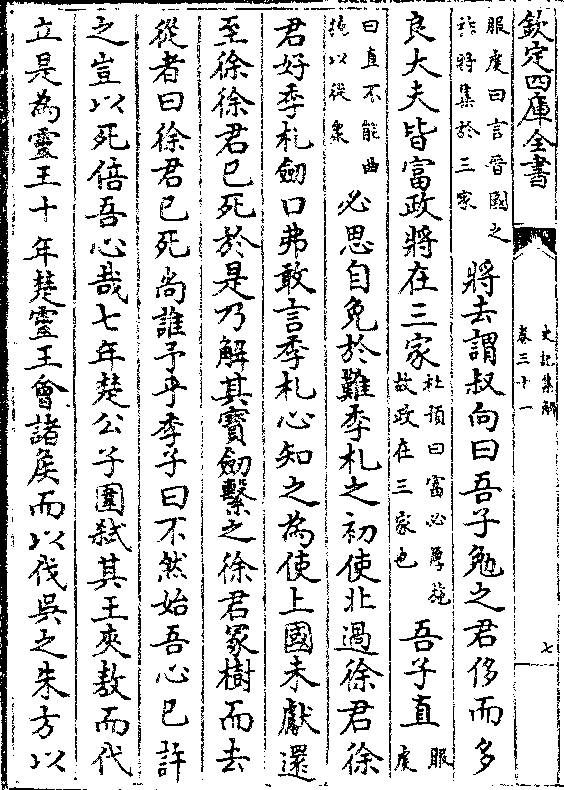 欽定四庫全書
史記集解
卷三十一
七
服虔曰言晉國之
祚將集於三家
將去謂叔向曰吾子勉之君侈而多
良大夫皆富政將在三家
杜預曰富必厚施
故政在三家也
吾子直
服
虔
曰直不能曲
撓以從衆
必思自免於難季札之初使北過徐君徐
君好季札劒口弗敢言季札心知之為使上國未獻還
至徐徐君已死於是乃解其寶劒繫之徐君冢樹而去
從者曰徐君已死尚誰予乎季子曰不然始吾心已許
之豈以死倍吾心哉七年楚公子圍弑其王夾敖而代
立是為靈王十年楚靈王會諸侯而以伐吳之朱方以